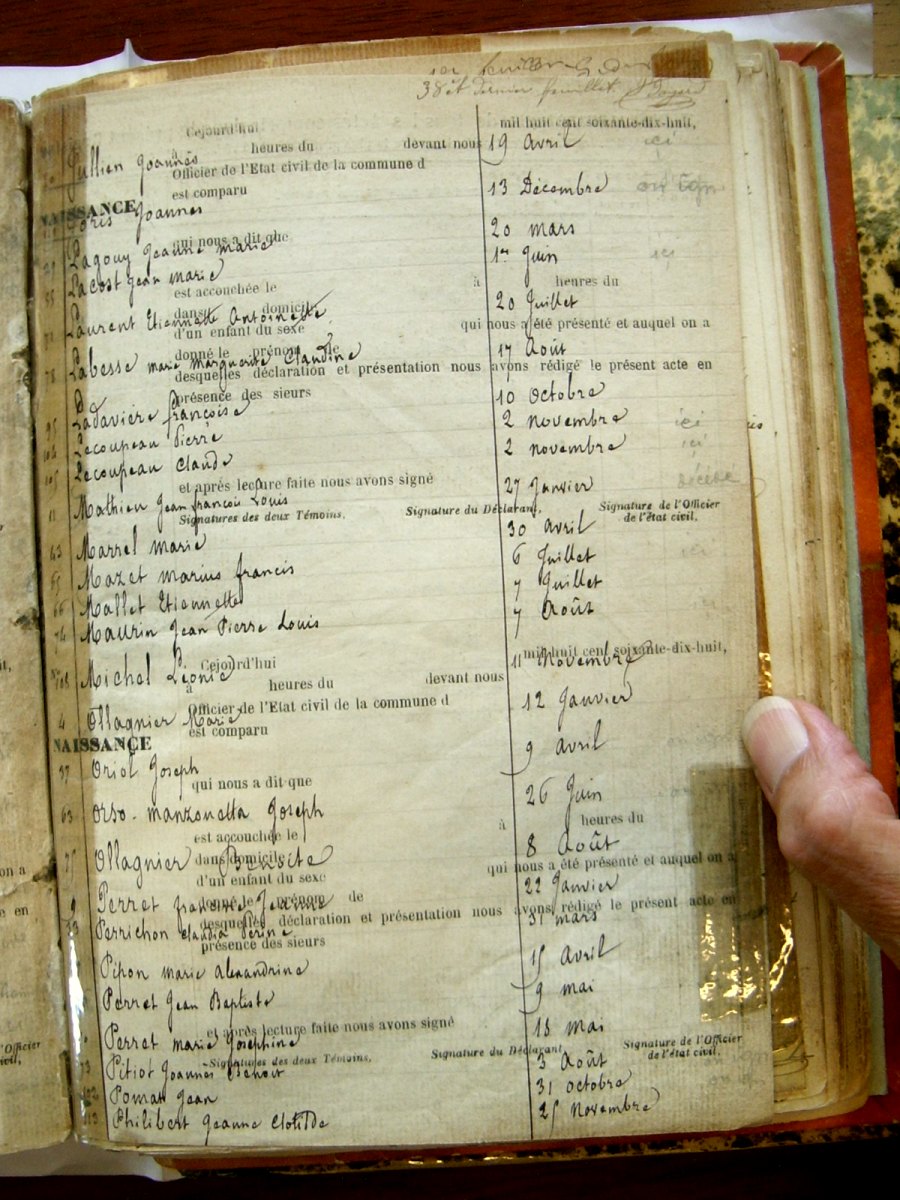 38 et dernier feuillet
Cejourd'hui mil huit cent soixante-dix-huit,
à heures du devant nous
Jullien Joannès 19 Avril ici
Officier de l'Etat civil de la commune d
est comparu 13 Décembre
NAISSANCE
Joris Joannes
20 mars
qui nous a dit que
Lagouy Jeanne marie 1er Juin ici
Lacost Jean marie
est accouchée le à heures du
dans domicile 20 Juillet
Laurent Etiennette Antoinette
d'un enfant du sexe qui nous a été présenté et auquel on a
donné le prénom de 17 Août
78 Labesse marie Marguerite Claudine
desquelles déclaration et présentation nous avons rédigé le présent acte en
présence des sieurs 10 Octobre
Ladavière françoise 2 novembre ici
Lecoupeau Pierre 2 novembre ici
105 Lecoupeau Claude
et après lecture faite nous avons signé 27 Janvier décédé
11 Mathieu Jean françois Louis
Signatures des deux Témoins. Signature du Déclarant, Signature de l'Officier
de l'état civil.
30 avril
43 Marrel marie 6 Juillet ici
65 Mazet marius francis 7 Juillet
66 Mallet Etiennette 7 Août
76 Maurin Jean Pierre Louis
Cejourd'hui mil huit cent soixante-dix-huit,
108 Michel Léonie 11 Novembre
à heures du devant nous
Officier de l'Etat civil de la commune d 12 Janvier
4 Ollagnier Marie
est comparu
NAISSANCE 9 avril
37 Oriol Joseph
qui nous a dit que 26 Juin
63 Orso-manzonetta Joseph
est accouchée le à heures du
dans domicile 8 Août
77 Ollagnier Benoite
d'un enfant du sexe qui nous a été présenté et auquel on a
donné le prénom de 22 Janvier
9 Perret françoise Jeanne
desquelles déclaration et présentation nous avons rédigé le présent acte en
33 Perrichon Claudia Perine 31 mars
présence des sieurs
Pipon marie alexandrine 15 Avril
Perret Jean Baptiste 9 mai
et après lecture faite nous avons signé
Perret marie Josephine 18 mai
Signatures des deux Témoins. Signature du Déclarant Signature de l'Officier
de l'état civil.
73 Pitiot Joannès Benoit 3 Août
102 Pomat Jean 31 octobre
113 Philibert Jeanne Clotilde 25 Novembre